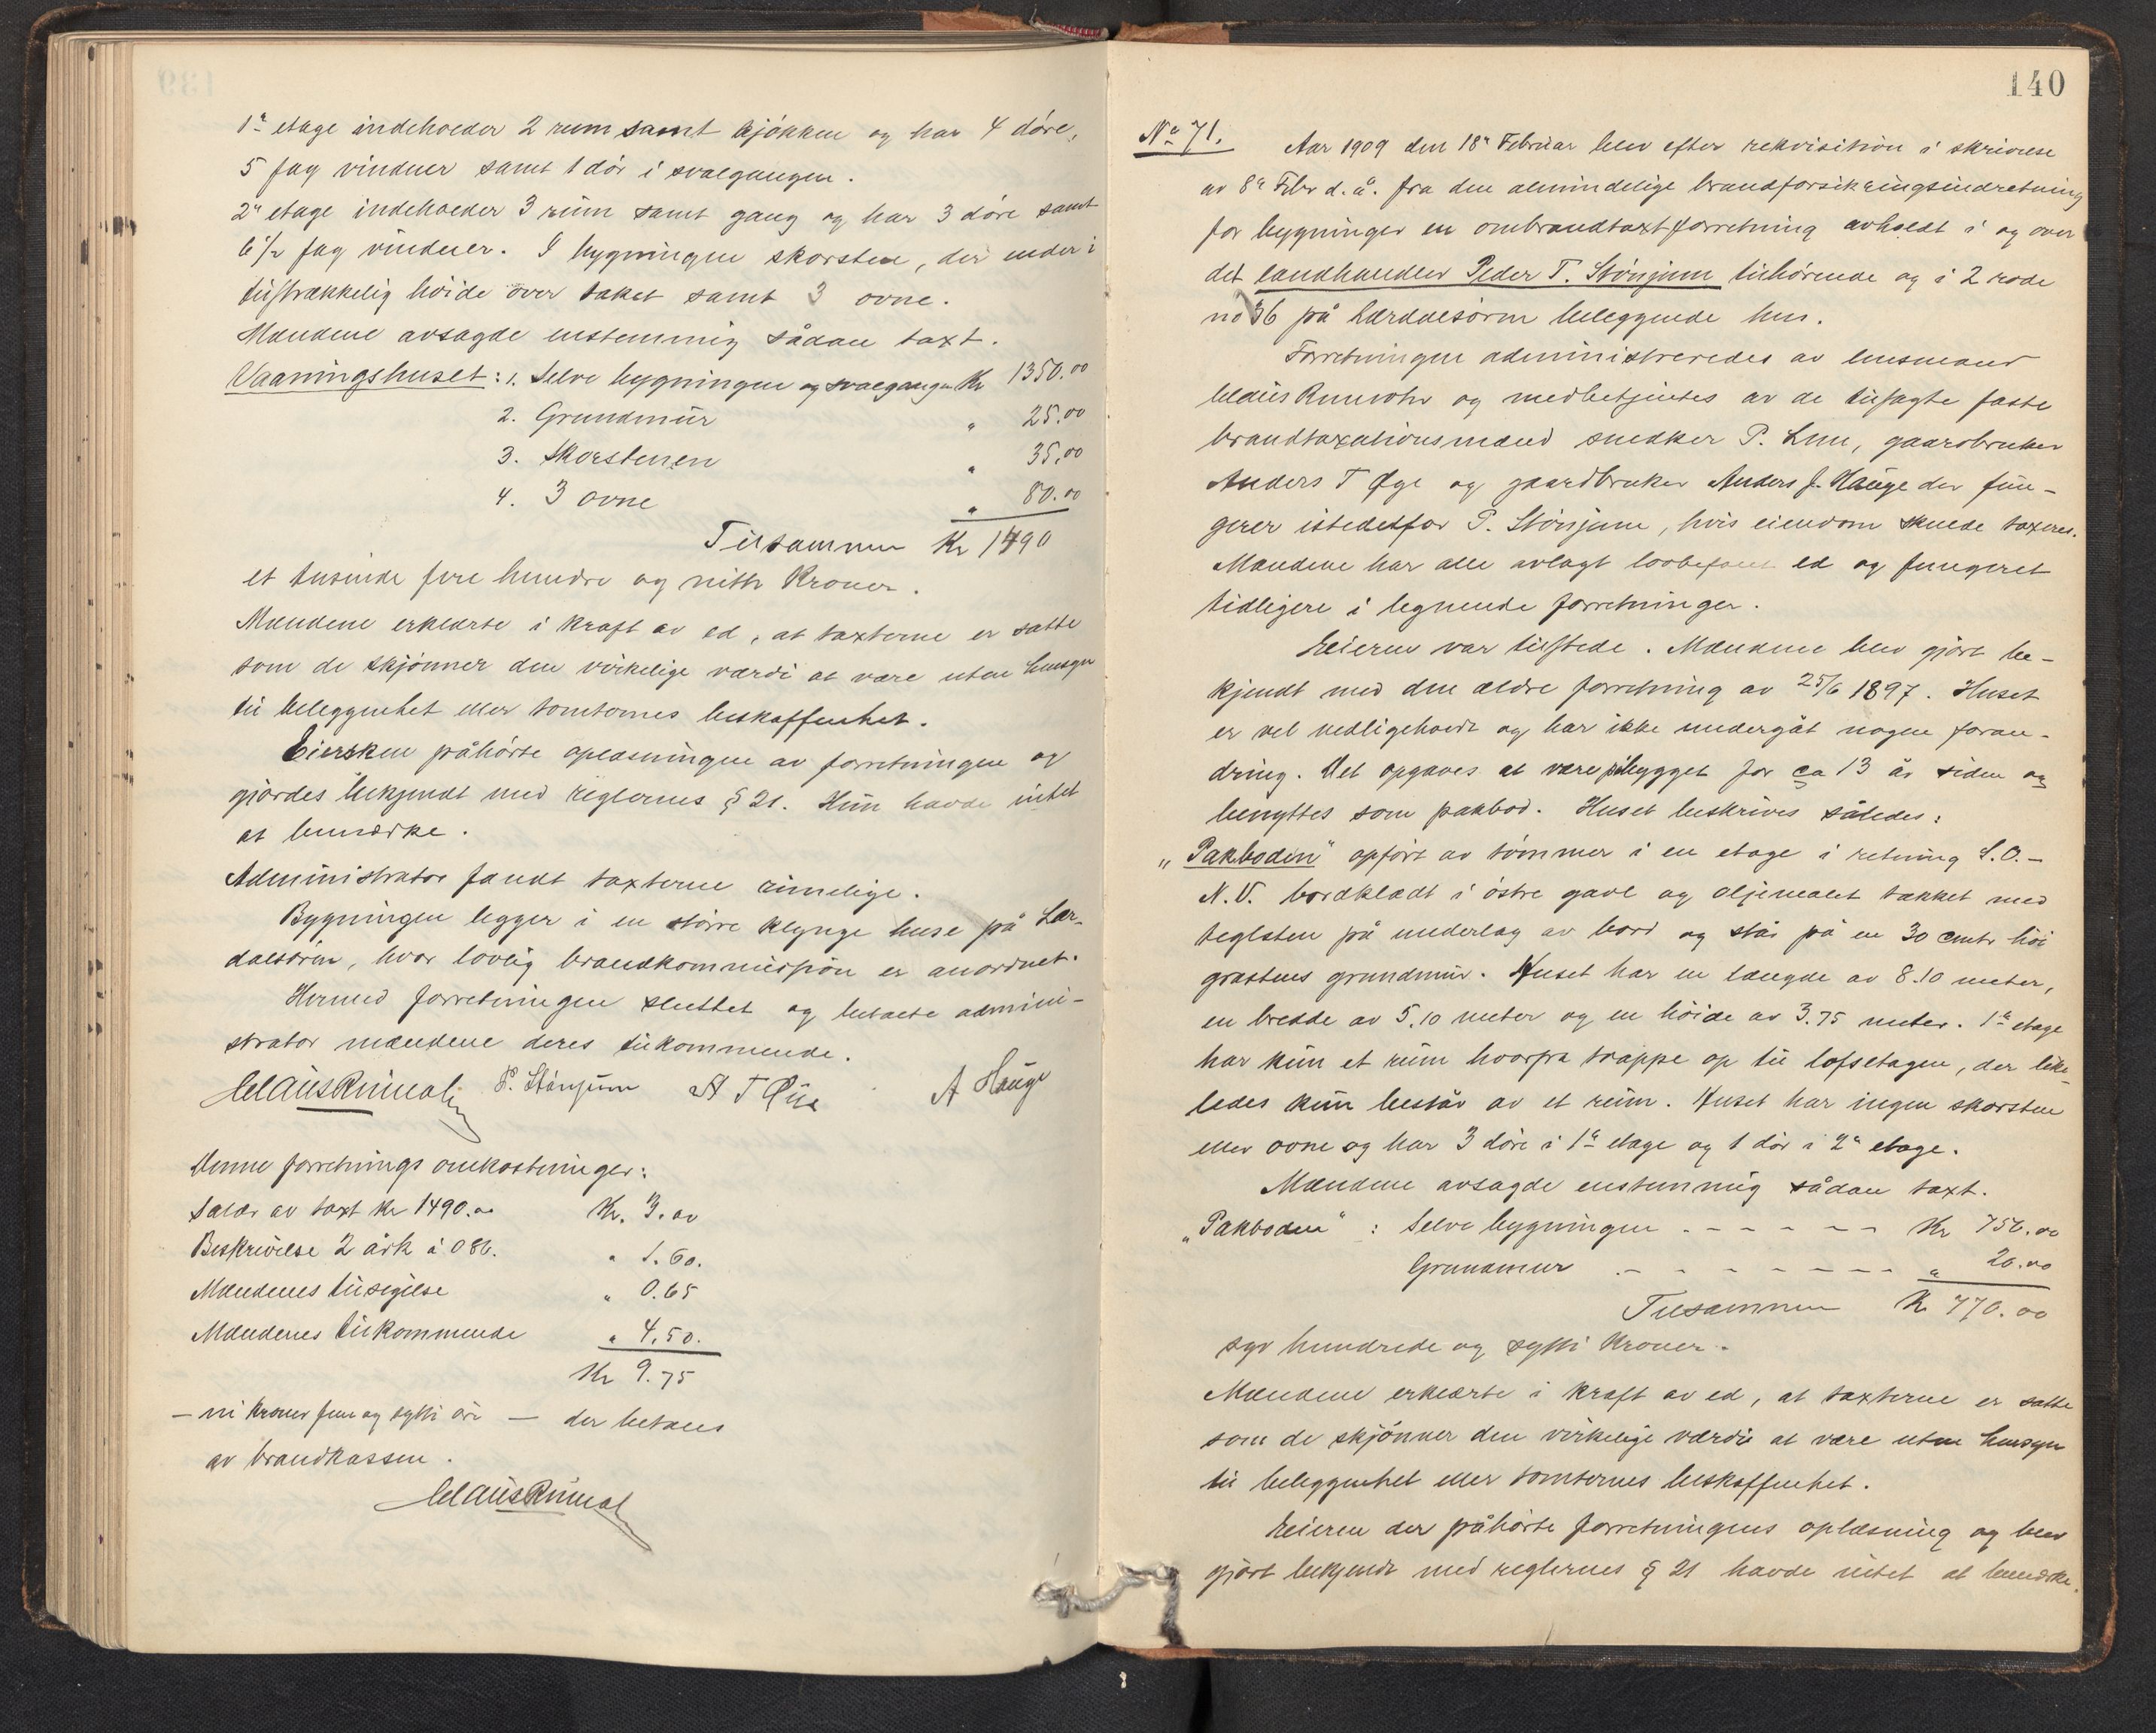 1ª etage indeholder 2 rum samt kjökken og har 4 döre,
5 fag vinduer samt 1 dör i svalgangen.
2ª etage indeholder 3 rum samt gang og har 3 döre samt
6½ fag vinduer. I bygningen skorsten, der ender i
tilstrækkelig höide over taket samt 3 ovne.
Mændene avsagde enstemmig sådan taxt.
Vaaningshuset: 1. Selve bygningen og svalgangen Kr 1350.00
2. Grundmur " 25.00
3. Skorstenen " 35.00
4. 3 ovne " 80.00
Tilsammen Kr 1490
et tusinde fire hundre og nitti Kroner.
Mændene erklærte i kraft av ed, at taxterne er satte
som de skjönner den virkelige værdi at være uten hensyn
til beliggenhet eller tomternes beskaffenhet.
Eiersken påhörte oplæsningen av forretningen og
gjördes bekjendt med reglernes § 21. Hun havde intet
at bemærke.
Administrator fandt taxterne rimelige.
Bygningen ligger i en större klynge huse på Lær-
dalsören, hvor lovlig brandkommission er anordnet.
Hermed forretningen sluttet og betalte admini-
strator mændene deres tilkommende.
Claus Rumohr P. Stönjum A T Øye A Hauge
Denne forretnings omkostninger:
Salær av taxt kr 1490.00 Kr. 3.00
Beskrivelse 2 ark á 080. " 1.60.
Mændenes tilsigelse " 0.65
Mændenes tilkommende " 4.50.
Kr 9.75
- ni kroner fem og sytti öre - der betales
av brandkassen.
Claus Rumohr
140
No 71. Aar 1909 den 18ª Februar blev efter rekvisition i skrivelse
av 8ª Febr d. å. fra den almindelige brandforsikringsindretning
for bygninger en ombrandtaxtforretning avholdt i og over
det landhandler Peder T. Stönjum tilhörende og i 2 rode
no 36 på Lærdalsören beliggende hus.
Forretningen administreredes av lensmand
Claus Rumohr og medbetjentes av de tilsagte faste
brandtaxationsmænd snedker P. Lem, gaardbruker
Anders T Øye og gaardbruker Anders J. Hauge der fun-
gerer istedetfor P. Stönjum, hvis eiendom skulde taxeres.
Mændene har alle avlagt lovbefalet ed og fungeret
tidligere i lignende forretninger.
Eieren var tilstede. Mændene blev gjört be-
kjendt med den ældre forretning av 25/6 1897. Huset
er vel vedligeholdt og har ikke undergåt nogen foran-
dring. Det opgaves at være påbygget for ca 13 år siden og
benyttes som pakbod. Huset beskrives således:
"Pakboden" opfört av tömmer i en etage i retning S.O.-
N.V. bordklædt i östre gavl og oljemalet takket med
teglsten på underlag av bord og står på en 30 cmtr höi
gråstens grundmur. Huset har en længde av 8.10 meter,
en bredde av 5.10 meter og en höide av 3.75 meter. 1ª etage
har kun et rum hvorfra trappe op til loftsetagen, der like-
ledes kun består av et rum. Huset har ingen skorsten
eller ovne og har 3 döre i 1ª etage og 1 dör i 2ª etage.
Mændene avsagde enstemmig sådan taxt.
"Pakboden": Selve bygningen - - - - - - Kr 750.00
Grundmur - - - - - - - - " 20.00
Tilsammen Kr 770.00
syv hundrede og sytti Kroner.
Mændene erklærte i kraft av ed, at taxterne er satte
som de skjönner den virkelige værdi at være uten hensyn
til beliggenhet eller tomternes beskaffenhet.
Eieren der påhörte forretningens oplæsning og blev
gjört bekjendt med reglernes § 21 havde intet at bemærke.